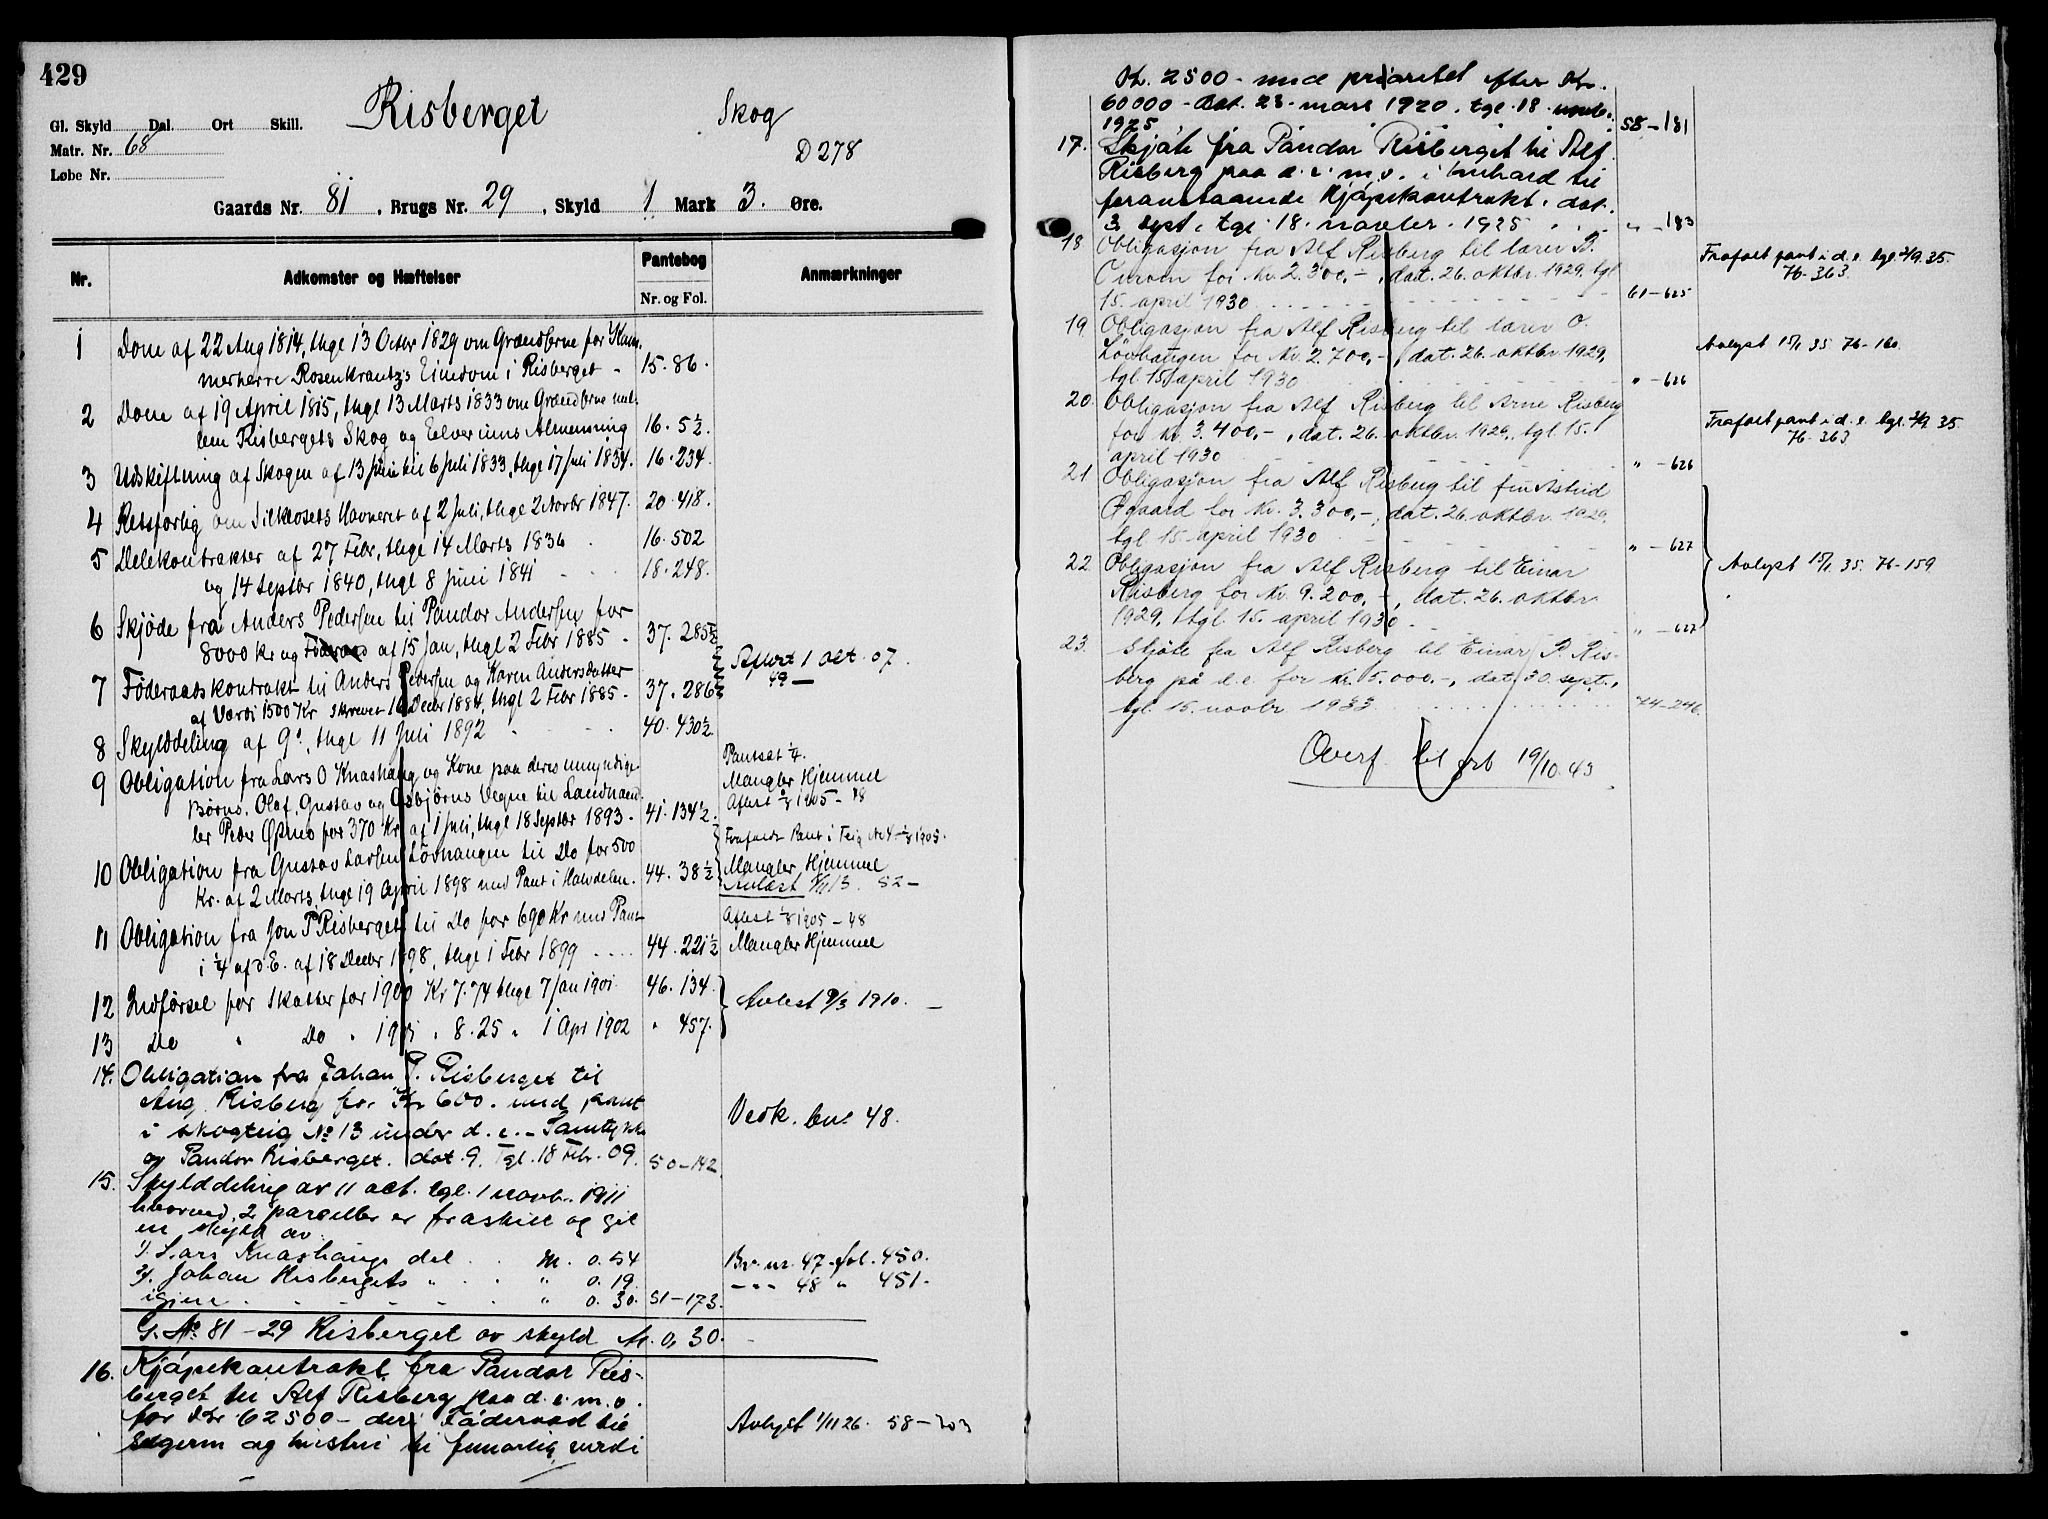 429
Risberget
Skog
Gl. Skyld Dal. Ort Skill.
Matr. Nr. 68
D 278
Løbe Nr.
Gaards Nr. 81, Brugs Nr. 29, Skyld 1 Mark 3. Øre.
Nr. Adkomster og Hæftelser Pantebog Nr. og Fol. Anmærkninger
1 Dom af 22 Aug 1814, thgl 13 Octbr 1829 om Grændserne for Kam-
merherre Rosenkrantz's Eiendom i Risberget - 15. 86.
2 Dom af 19 April 1815, thgl 13 Marts 1833 om Grændserne mel-
lem Risbergets Skog og Elverums Almenning 16. 5½.
3 Udskiftning af Skogen af 13 Juni til 6 Juli 1833, thgl 17 Juli 1834. 16. 234.
4 Retsforlig om Havneret af 2 Juli, thgl 2 Novbr 1847. 20. 418.
5 Delekontrakter af 27 Febr, thgl 14 Marts 1836 16. 502
og 14 Septbr 1840, thgl 8 Juni 1841 18. 248.
6 Skjøde fra Anders Pedersen til Pandor Andersen for
8000 Kr og Føderaad af 15 Jan, thgl 2 Febr 1885 - 37. 285½
7 Føderaadskontrakt til Anders Pedersen og Karen Andersdatter
af Værdi 1500 Kr skrevet 16 Decbr 1884, thgl 2 Febr 1885 - 37. 286½ Aflæst 1 Okt. 07.
49 —
8 Skylddeling af 9d, thgl 11 Juli 1892 40. 430½
9 Obligation fra Lars O Knashaug og Kone paa deres umyndige
Børns, Olaf, Gustav og Asbjørns Vegne til Landhand-
ler Peder Øpmo for 370 Kr af 1 Juli, thgl 18 Septbr 1893. 41. 134½.
Pantsat ¼.
Mangler Hjemmel
Aflæst 1/8 1905 - 48
10 Obligation fra Gustav Larsen Lövhaugen til Do for 500
Kr. af 2 Marts, thgl 19 April 1898 med Pant i Halvdelen. 44. 38½
Frafaldt Pant i Teig No 4 - 1/8 1905.
Mangler Hjemmel
Avlæst 13. 52 -
11 Obligation fra Jon P Risberget til Do for 690 Kr med Pant
i ¼ af d. E. af 18 Decbr 1898, thgl 1 Febr 1899 .... 44. 221½
Aflæst 1/8 1905 - 48
Mangler Hjemmel
12 Indførsel for Skatter for 1900 Kr 7.74 thgl 7 Jan 1901. 46. 134.
13 Do " Do " 1901 " 8.25 " 1 Apr 1902 " 457.
Avlest 9/3 1910. —
14. Obligation fra Johan P. Risberget til
Aug. Risberg for Kr 600. med pant
i skogteig No 13 under d. e. - Samtykke
av Pandor Risberget. dat. 9. Tgl. 18 Febr. 09. 50-142 Vedk. bnr 48.
15. Skylddeling av 11 oct. tgl. 1 novbr. 1911
hvorved 2 parceller er fraskilt og git
en skyld av
1/. Lars Knashaugs del . . M. 0.54 Br. nr. 47 - fol. 450.
2/. Johan Risbergets " . . " 0.19 - - - 48 " 451.
igjen . - - - - - " 0.30. 51-173.
G. No 81-29 Risberget av skyld M. 0,30.
16. Kjøpekontrakt fra Pandor Ris-
berget til Alf Risberg paa d. e. m. v.
for Kr 62500 - derav Føderaad til
sælgeren og hustru til femaarlig værdi Avlyst 1/11 26. 58-303
Kr. 2500 - med prioritet efter Kr.
60000 - Dat. 23. mars 1920. tgl. 18. novbr.
1925 . . . 58-181
17. Skjøte fra Pandor Risberget til Alf
Risberg paa d. e. m. v. i henhold til
foranstaaende Kjøpekontrakt. dat.
3 sept. tgl. 18. november. 1925 . . . " -183
18 Obligasjon fra Alf Risberg til lærer B.
for kr. 2.300,-, dat. 26. oktbr. 1929. tgl.
15. april 1930 . . . 61-625 Frafalt pant i d. e. tgl. 2/9. 35.
76-363
19. Obligasjon fra Alf Risberg til lærer O.
Lövhaugen for kr. 2.700,-, dat. 26. oktbr. 1929,
tgl. 15. april 1930 " -626 Avlyst 15/1 35 76-160.
20. Obligasjon fra Alf Risberg til Arne Risberg
for kr. 3.400,-, dat. 26. oktbr. 1929, tgl. 15.
april 1930 " -626 Frafalt pant i d. e. tgl. 2/9. 35
76-363
21 Obligasjon fra Alf Risberg til frû Astrid
Øgaard for kr. 3.300,-, dat. 26. oktbr. 1929,
tgl. 15. april 1930 " -627
22 Obligasjon fra Alf Risberg til Einar
Risberg for kr. 9.200,-, dat. 26. oktbr
1929, tgl. 15. april 1930 " -627 Avlyst 15/1. 35. 76-159
23. Skjöte fra Alf Risberg til Einar P. Ris-
berg på d.e. for kr. 5.000.-, dat. 30. sept.,
tgl. 15. novbr 1933 . . . 74-246
Overf. til grb 19/10.43